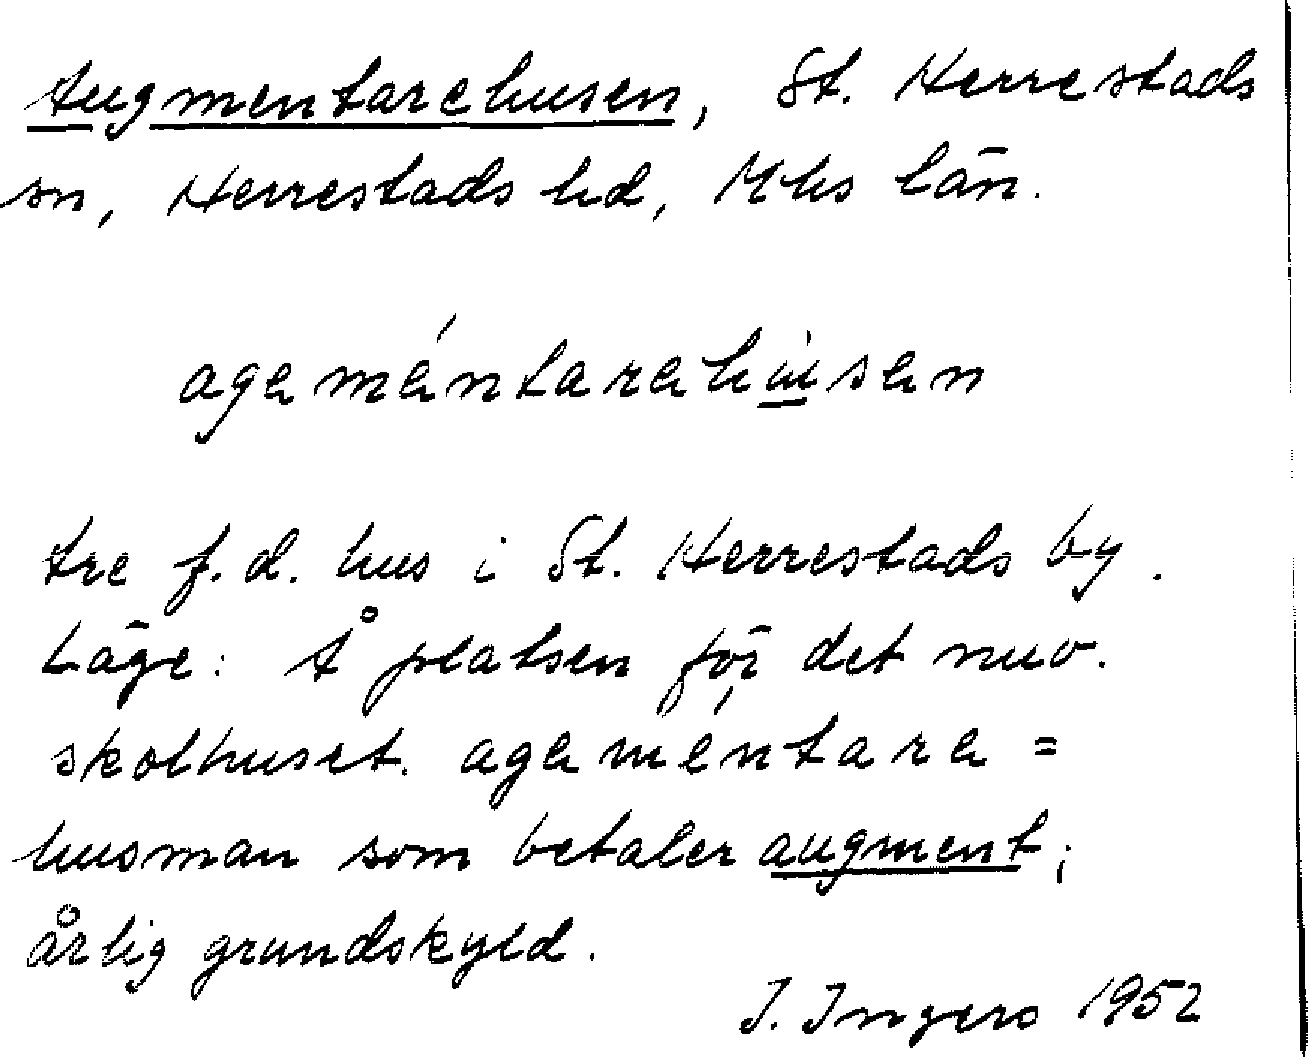 Augmentarehusen, St. Herrestads
sn, Herrestads hd, Mhs län.
ageméntarehúsen
tre f.d. hus i St. Herrestads by.
Läge: Å platsen för det nuv.
skolhuset. ageméntare =
husman som betaler augment;
årlig grundskyld.
I. Ingers 1952